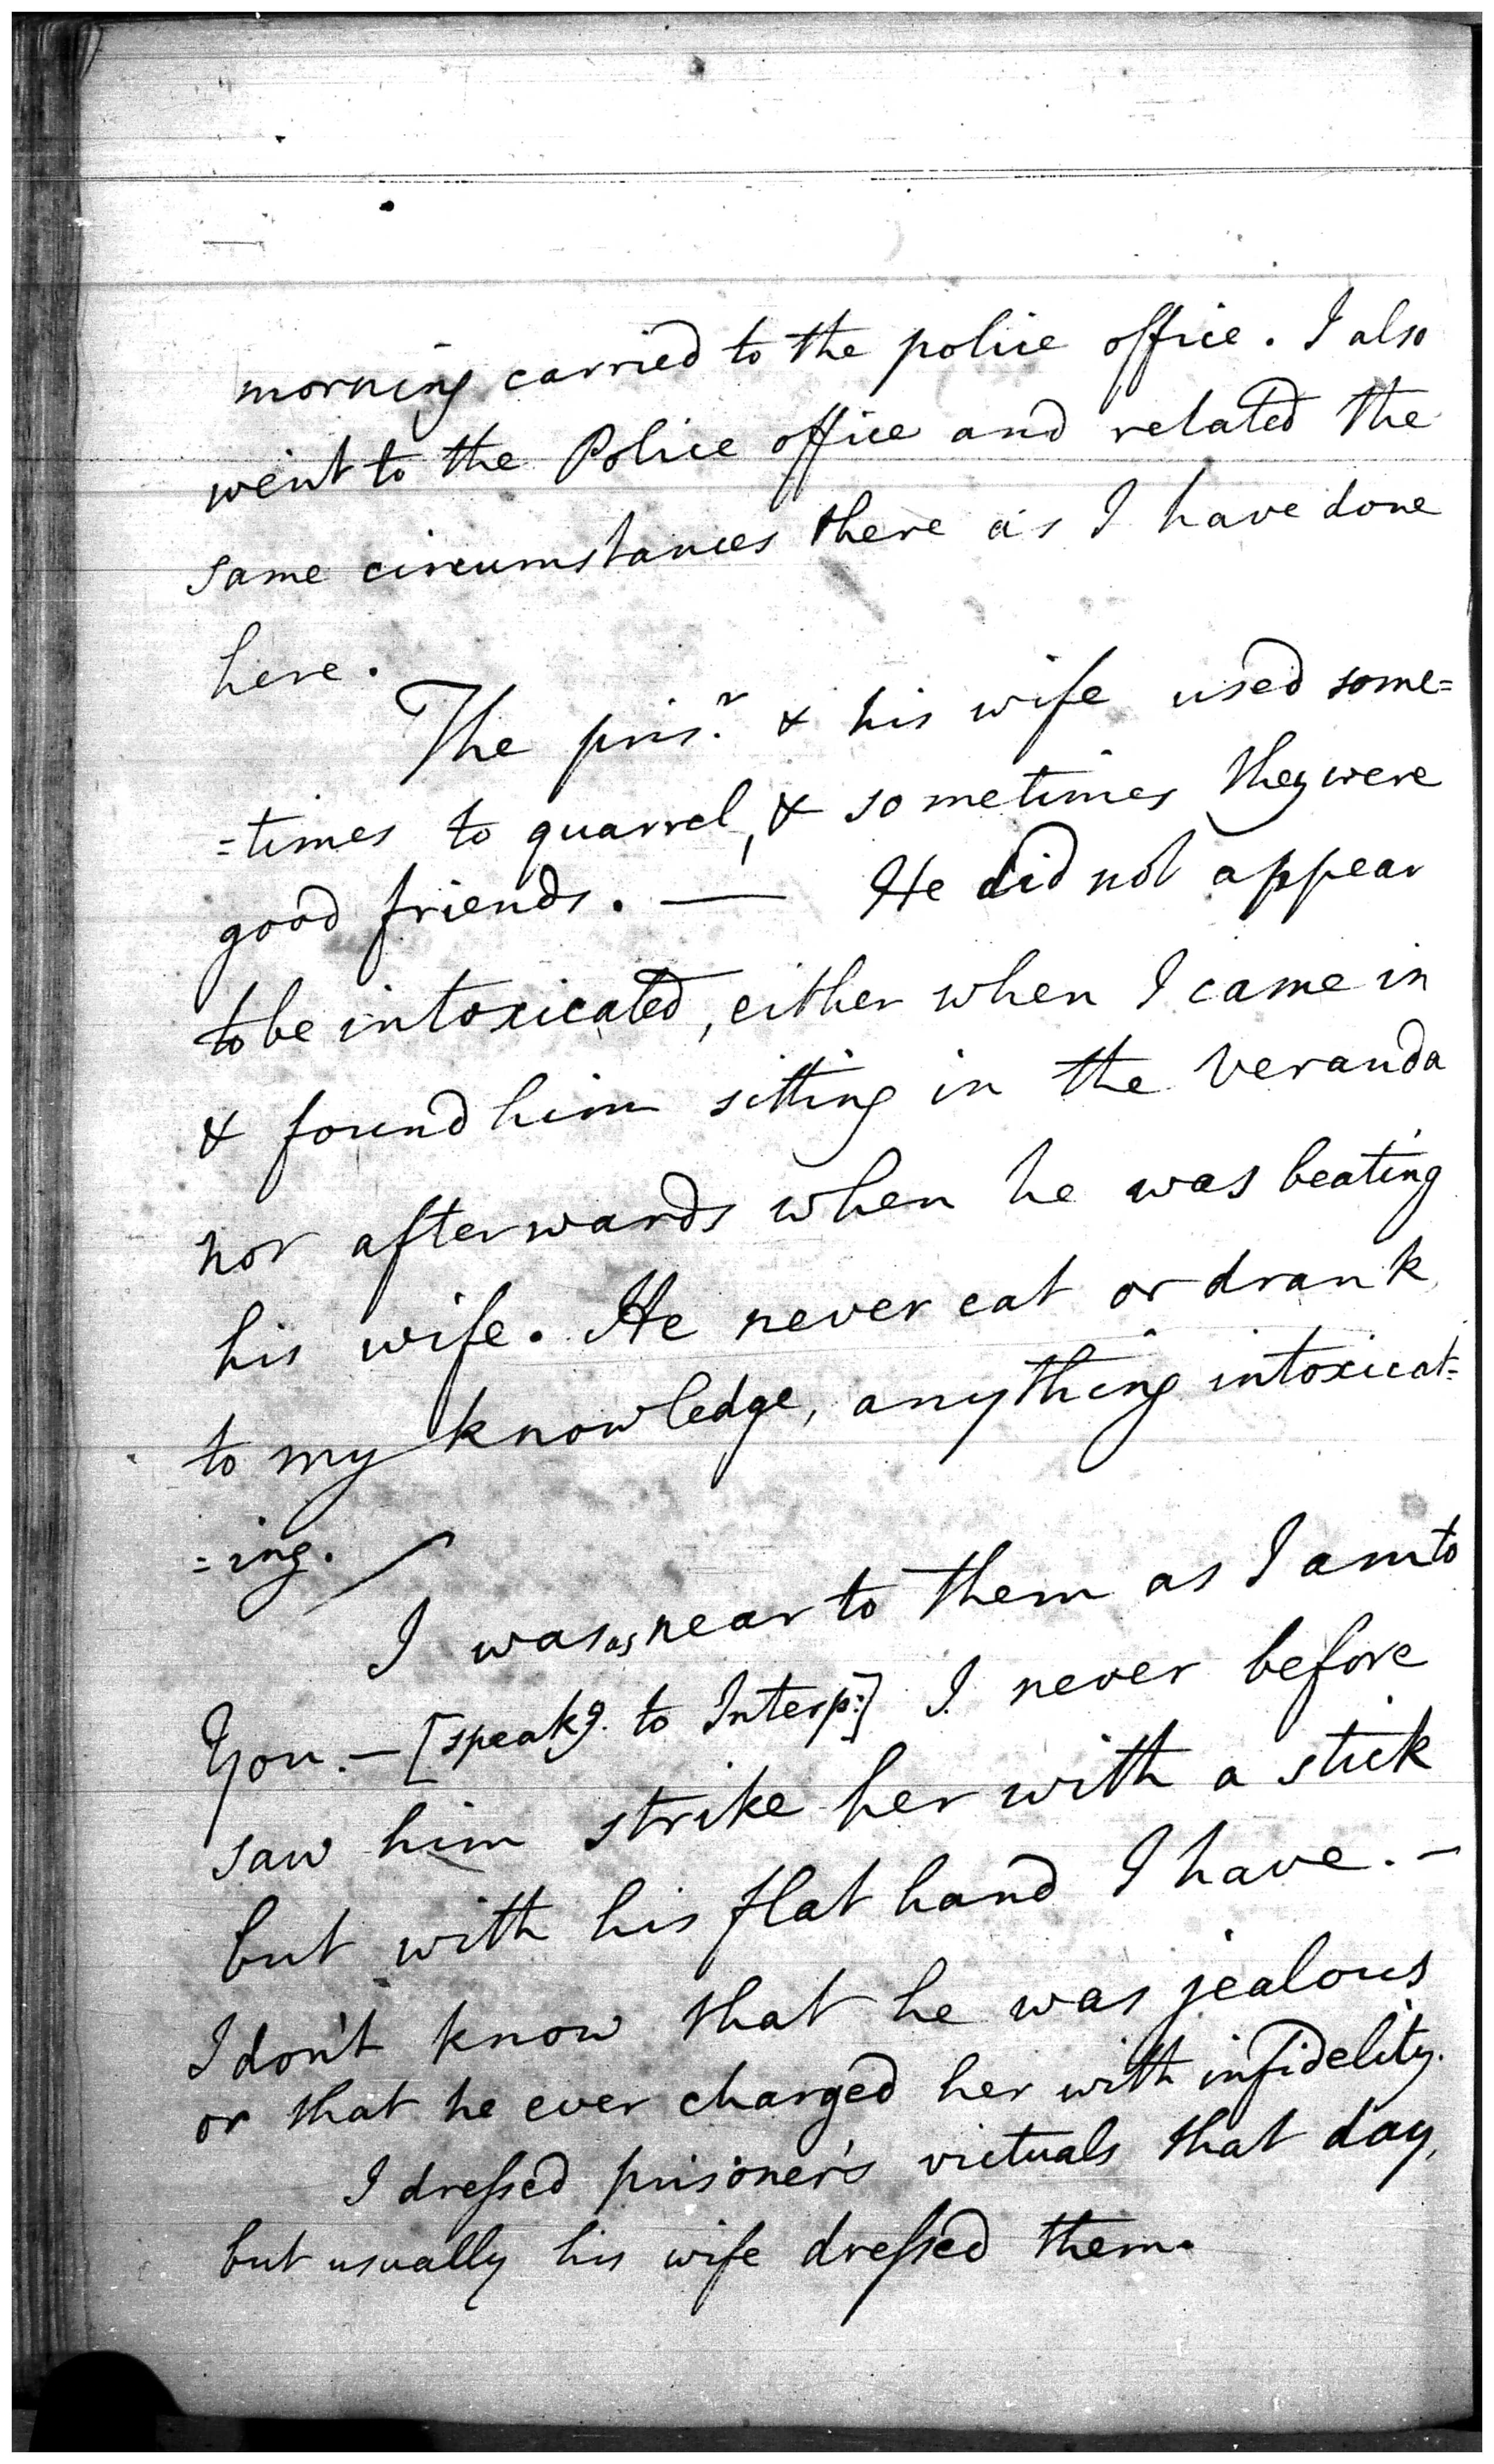 morning carried to the police office. I also
went to the Police office and related the
same circumstances there as I have done
here.
The pris.r & his wife used some=
=times to quarrel, & sometimes they were
good friends. — He did not appear
to be intoxicated, either when I came in
& found him sitting in the veranda
nor afterwards when he was beating
his wife. He never eat or drank
to my knowledge, anything intoxicat=
=ing.
I was as near to them as I am to
You. — [speakg. to Interp:] I never before
saw him strike her with a stick
but with his flat hand I have. —
I don't know that he was jealous
or that he ever charged her with infidelity.
I dreſsed prisoner's victuals that day,
but usually his wife dreſsed them.